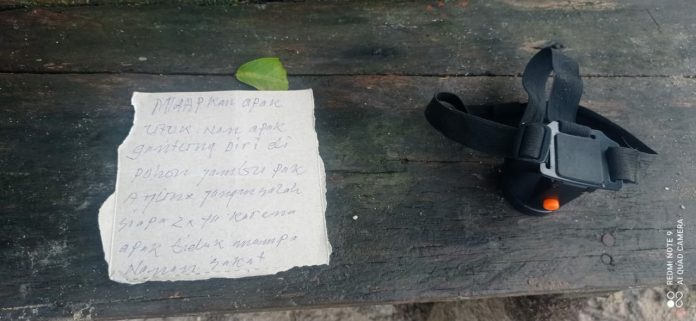 MAAPKan apak
Utuk. Nan apak
gantung Diri di
Pohon jambu pak
jangan salah
siapa 2x ya karena
apak tiduk mampu
Nanan sakat
REDMI NOTE 9
AI QUAD CAMERA